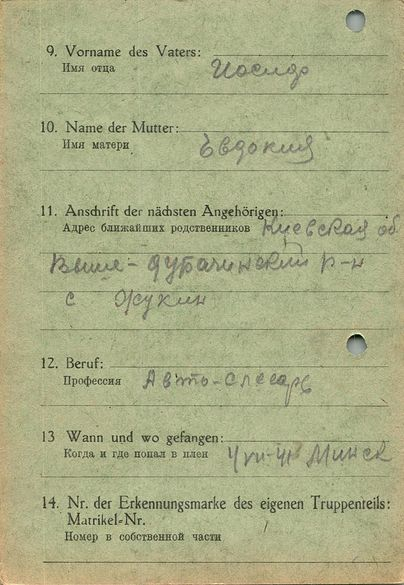 9. Vorname des Vaters:
Имя отца
10. Name der Mutter:
Имя матери Евдокия
11. Anschrift der nächsten Angehörigen:
Адрес ближайших родственников Киевская об
Выше-Дубачинский р-н
с Жукин
12. Beruf:
Профессия Авто-слесарь
13 Wann und wo gefangen:
Когда и где попал в плен Минск
14. Nr. der Erkennungsmarke des eigenen Truppenteils:
Matrikel-Nr.
Номер в собственной части